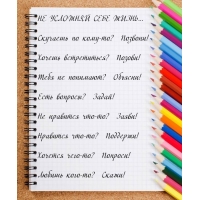 НЕ УСЛОЖНЯЙ СЕБЕ ЖИЗНЬ...
Скучаешь по кому-то? Позвони!
Хочешь встретиться? Позови!
Тебя не понимают? Объясни!
Есть вопросы? Задай!
Не нравится что-то? Заяви!
Нравится что-то? Поддержи!
Хочется чего-то? Попроси!
Любишь кого-то? Скажи!